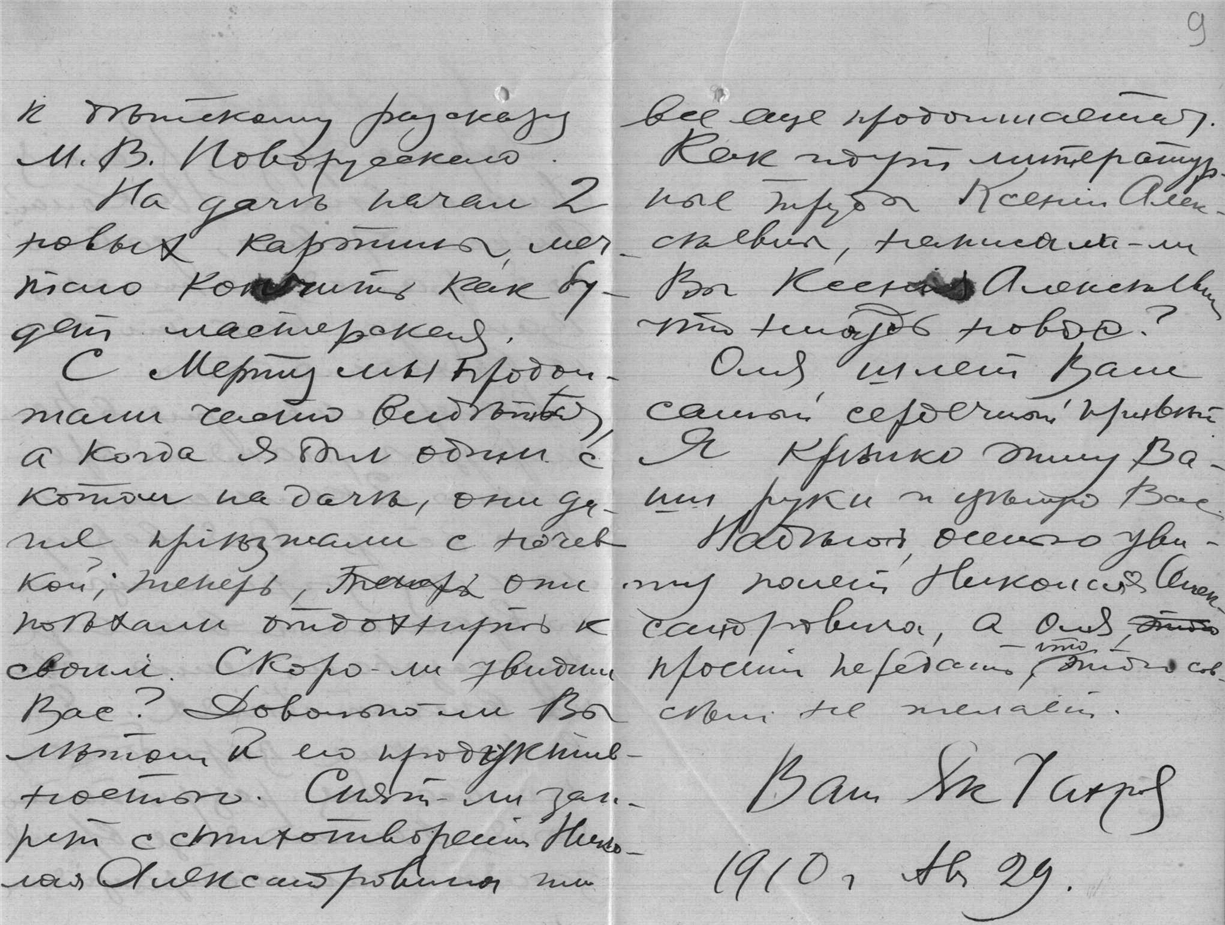 9
к дѣтскому разсказу
М. В. Новорусскаго.
На дачѣ начал 2
новых картины, меч-
таю кончить как бу-
дет мастерская.
С Мерту мы продол-
жали часто видѣться,
а когда я был один с
котом на дачѣ, они да-
же пріѣзжали с ночев
кой; теперь, теперь они
поѣхали отдохнуть к
своим. Скоро-ли увидим
Вас? Довольно ли Вы
лѣтом и его продуктив-
ностью. Снят-ли зап-
рет с стихотвореній Нико-
лая Александровича или
все еще продолжается.
Как идут литератур-
ные труды Ксеніи Алек-
сѣевны, написали-ли
Вы Ксенія Алексѣевна
что нибудь новое?
Оля шлет Вам
самый сердечный привѣт
Я крѣпко жму Ва-
ши руки и цѣлую Вас
Надѣюсь, осенью уви-
жу полет Николая Алек-
сандровича, а Оля, этого
просит передать, что этого сов-
сѣм не желает.
Ваш Як Гандра
1910 г Ав 29.